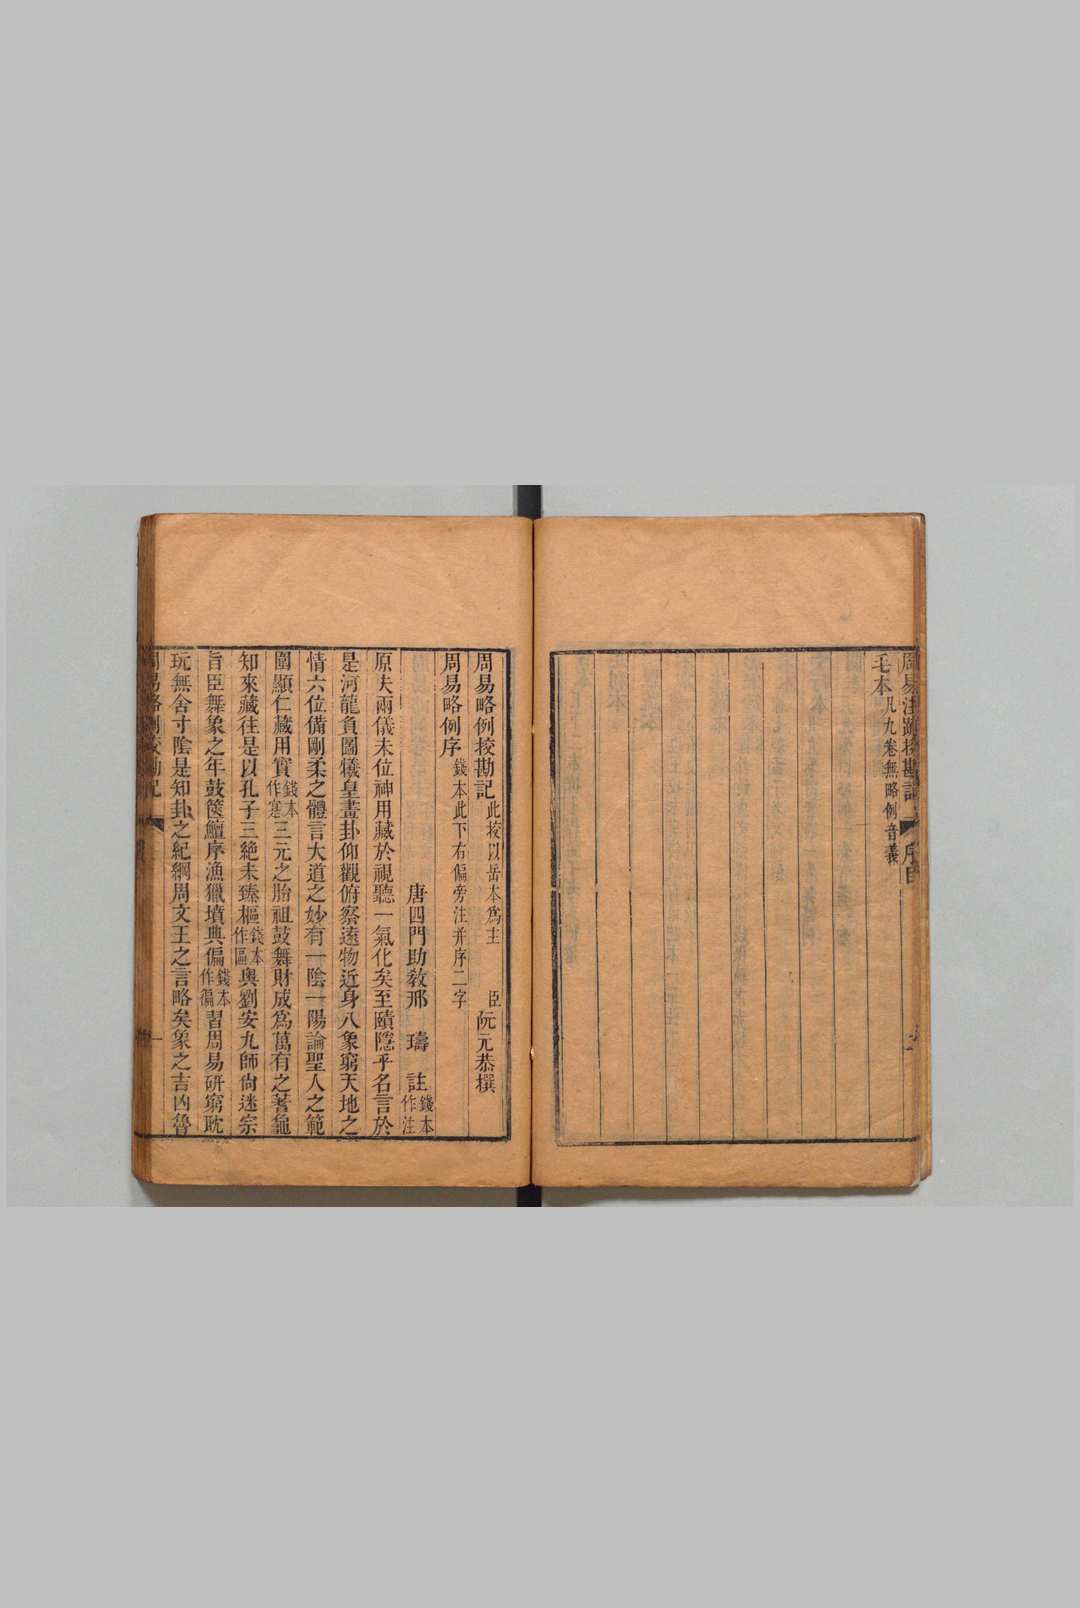 周易注疏挍勘記 序目
毛本凡九卷無略例音義
周易略例挍勘記此挍以岳本爲主 臣阮元恭撰
周易略例序錢本此下右偏旁注并序二字
唐四門助敎邢 璹 註錢本作注
原夫兩儀未位神用藏於視聽一氣化矣至賾隱乎名言於
是河龍負圖犧皇畫卦仰觀俯察遠物近身八象窮天地之
情六位備剛柔之體言大道之妙有一陰一陽論聖人之範
圍顯仁藏用寔錢本作寔三元之胎祖鼓舞財成爲萬有之蓍龜
知來藏往是以孔子三絶未臻樞錢本作區奥劉安九師尙迷宗
旨臣舞象之年鼓篋鱣序漁獵墳典偏錢本作徧習周易硏窮耽
玩無舍寸陰是知卦之紀綱周文王之言略矣象之吉凶魯
周易略例挍勘記 一